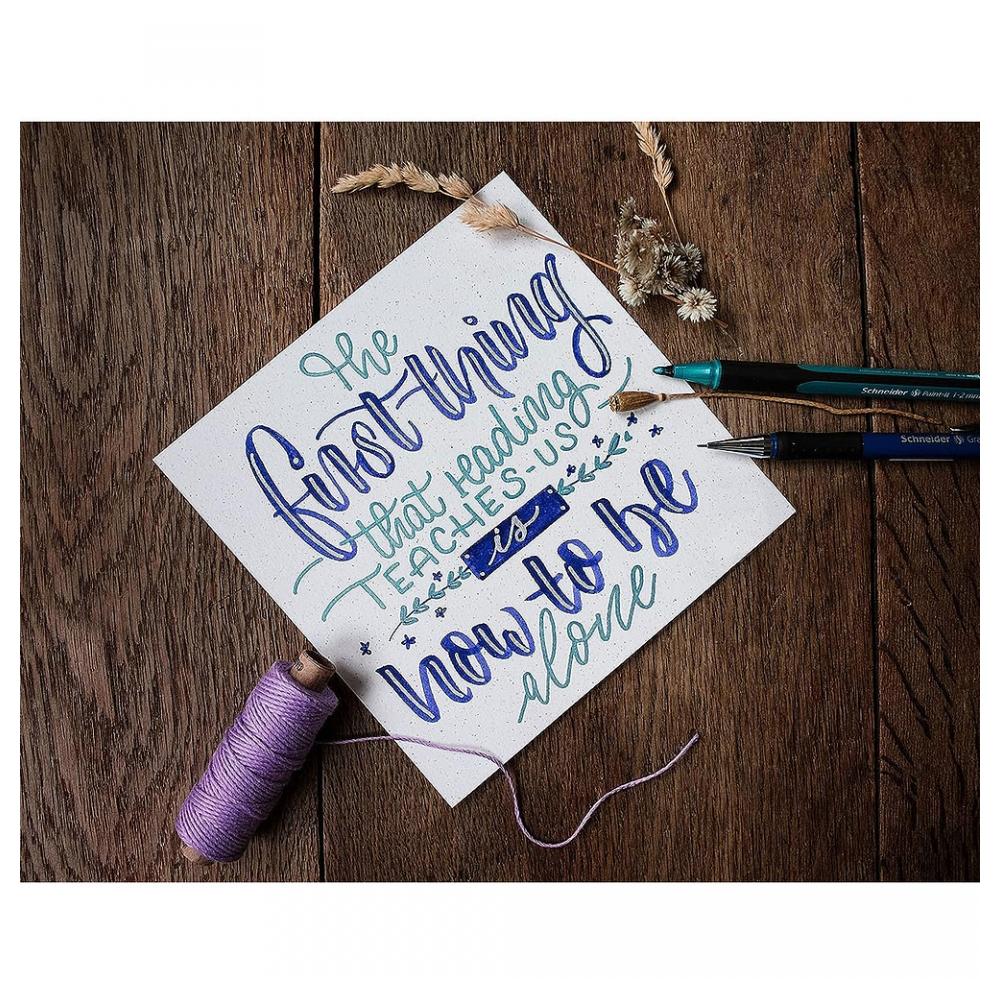 the
first thing
that reading
TEACHES-US
is
how to be
alone
Schneider Paint-it 1-2 mm
Schneider Gra